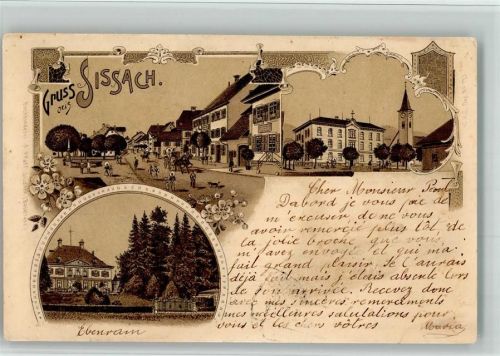 Gruss aus Sissach.
Cher Monsieur
D'abord je vous prie de
m'excuser de ne vous
avoir remercié plus tôt, de
la jolie broche que vous
m'avez envoyé et qui m'a
fait grand plaisir. Je l'aurais
déjà fait mais j'étais absente lors
de son arrivée. Recevez donc
avec mes sincères remerciements
mes meilleures salutations pour
vous et les chers vôtres
Maria
Ebenrain